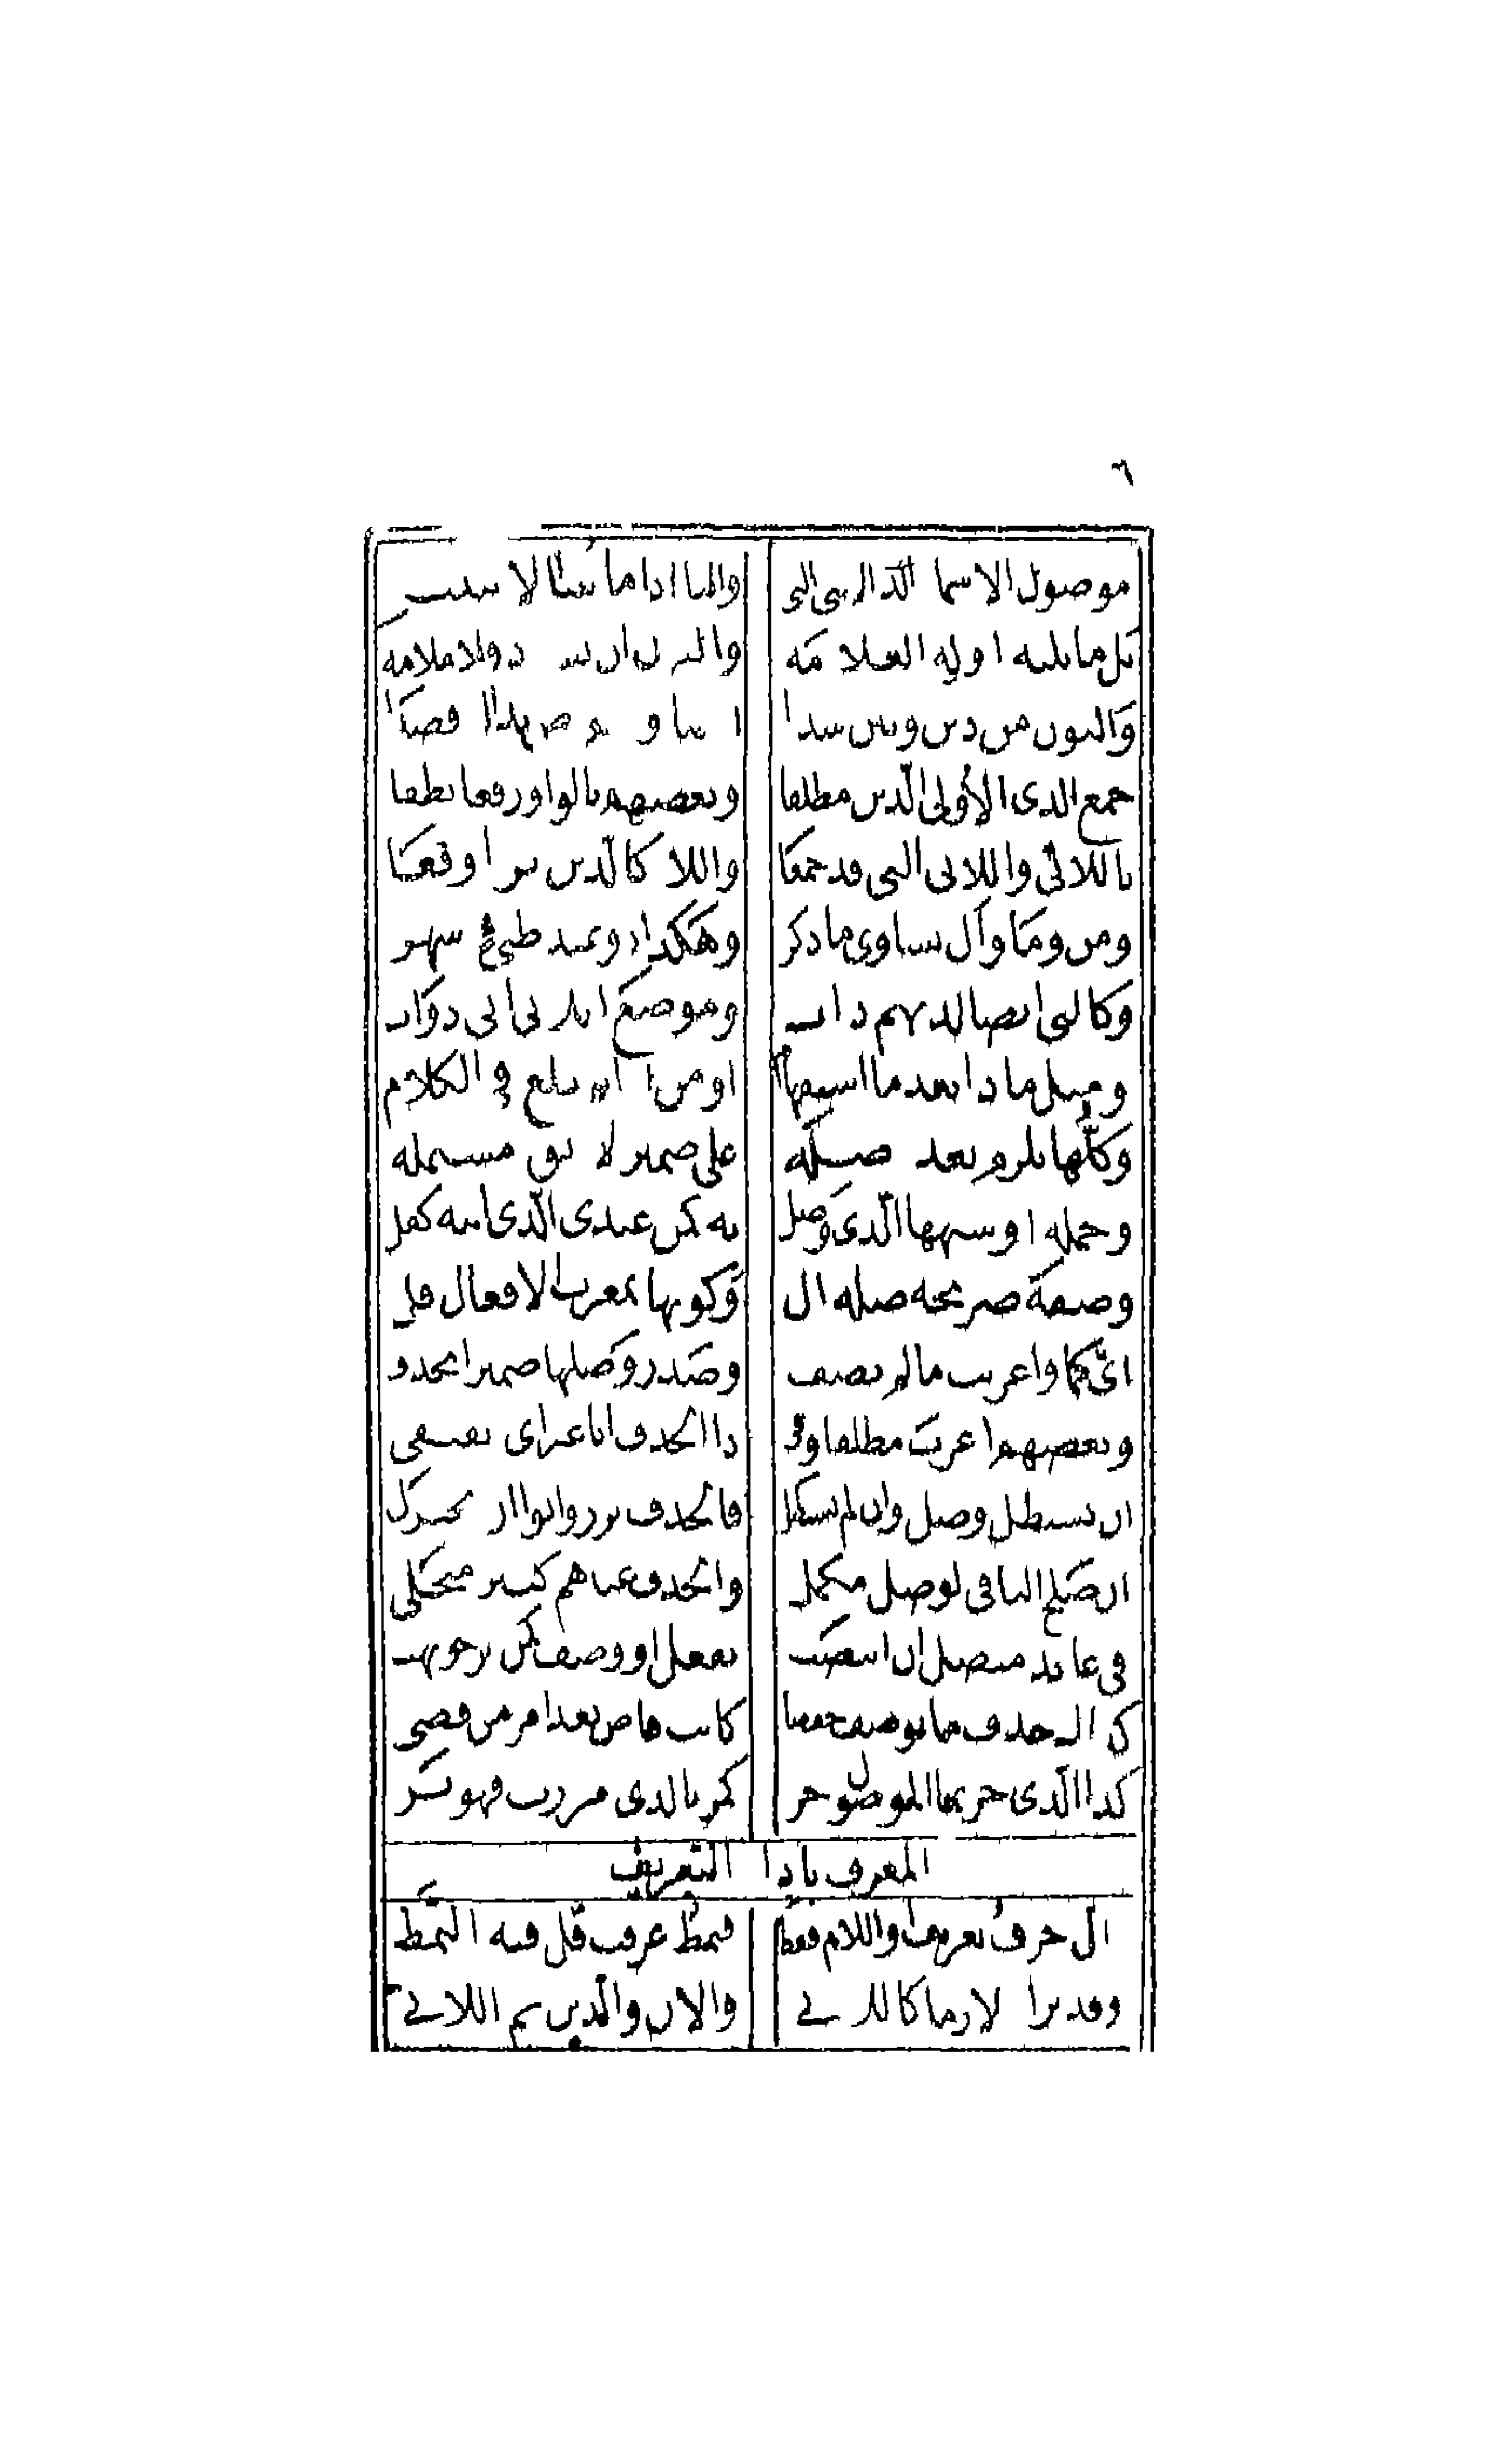 ٦
موصول الاسما الذى الانثى التى واليا اذا ما ثنيا لا تثبت
بل ما تليه اوله العلامه والنون ان تشدد فلا ملامه
والنون من ذين وتين شددا ايضا وتعويض بذاك قصدا
جمع الذى الأولى الذين مطلقا وبعضهم بالواو رفعا نطقا
باللات واللائى التى قد جمعا واللاء كالذين نزرا وقعا
ومن وما وأل تساوى ما ذكر وهكذا ذو عند طيئ شهر
وكالتى ايضا لديهم ذات وموضع اللاتى أتى ذوات
ومثل ما ذا بعد ما استفهام او من اذا لم تلغ فى الكلام
وكلها يلزم بعده صله على ضمير لائق مشتمله
وجملة او شبهها الذى وصل به كمن عندى الذى ابنه كفل
وصفة صريحة صلة ال وكونها بمعرب الافعال قل
اى كما واعربت ما لم تضف وصدر وصلها ضمير انحذف
وبعضهم اعرب مطلقا وفى ذا الحذف ايا غير اى يقتفى
ان يستطل وصل وان لم يستطل فالحذف نزر وابوا ان يختزل
ان صلح الباقى لوصل مكمل والحذف عندهم كثير منجلى
فى عائد متصل ان انتصب بفعل او وصف كمن نرجو يهب
كذاك حذف ما بوصف خفضا كانت قاض بعد امر من قضى
كذا الذى جر بما الموصول جر كمر بالذى مررت فهو بر
المعرف باداة التعريف
ال حرف تعريف او اللام فقط فنمط عرفت قل فيه النمط
وقد تزاد لازما كاللات والآن والذين ثم اللات